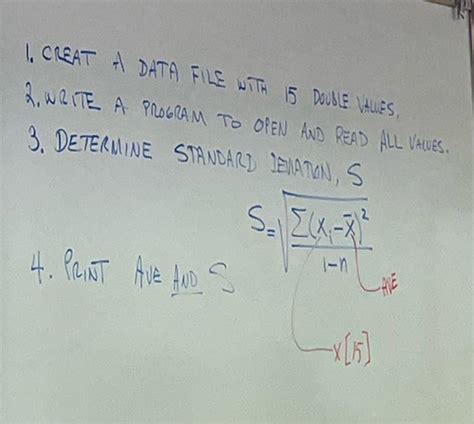 1. CREAT A DATA FILE WITH 15 DOUBLE VALUES,
2. WRITE A PROGRAM TO OPEN AND READ ALL VALUES.
3. DETERMINE STANDARD DEVIATION, S
S = √(Σ(xᵢ-x̄)² / 1-n)
AVE
4. PRINT AVE AND S
x[15]